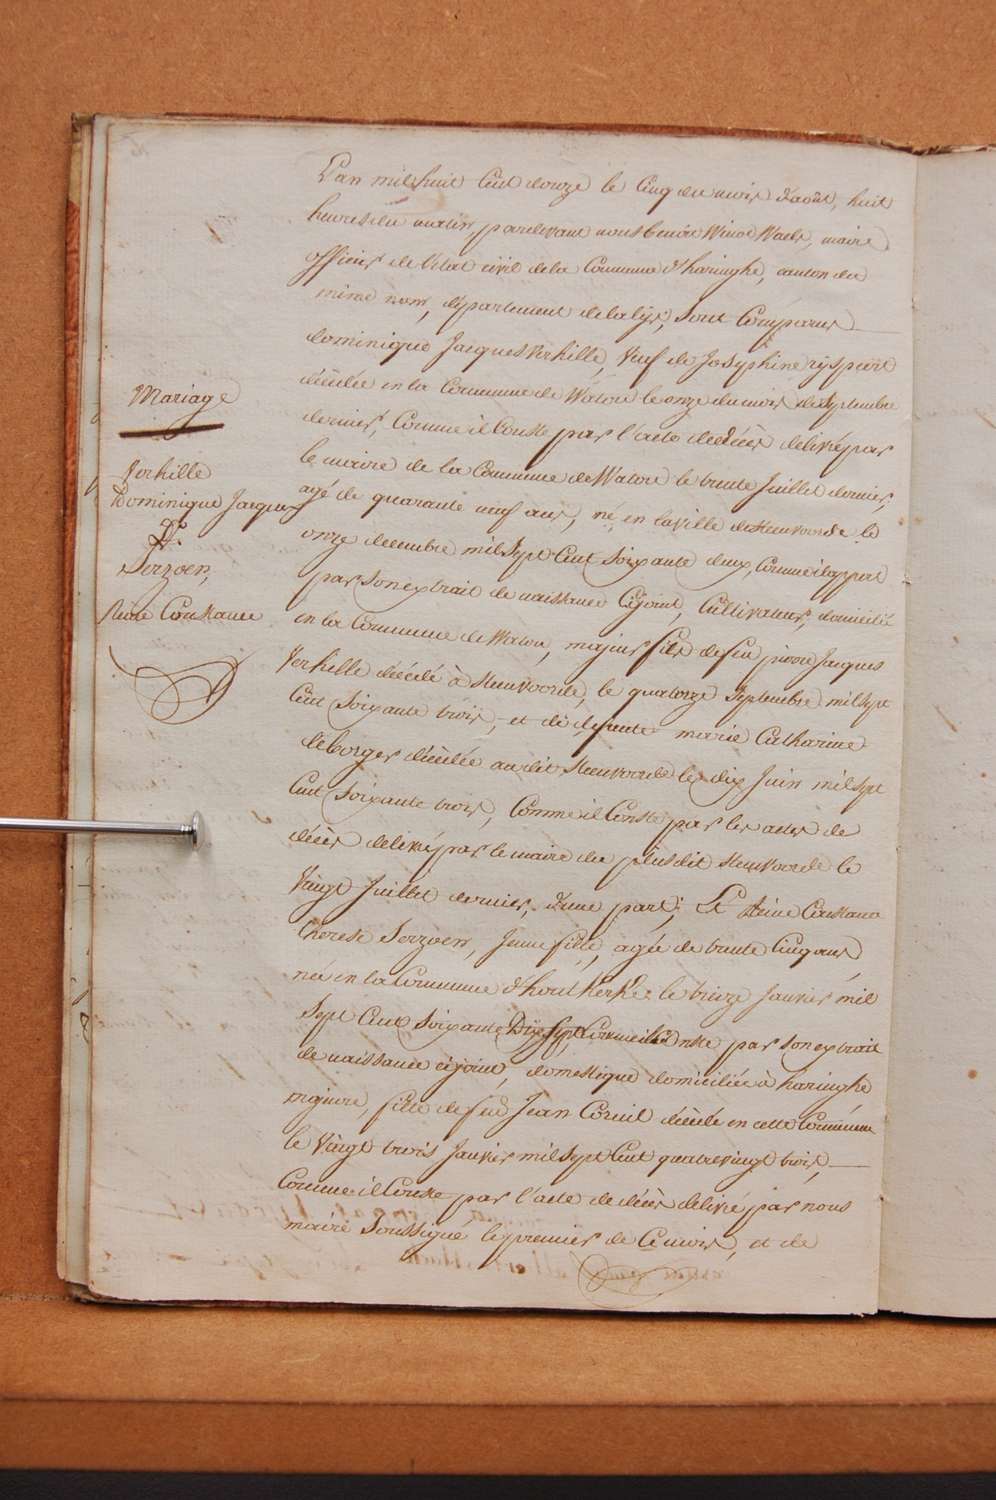 Mariage
Verhille
Dominique Jacques
&
Serzoen,
Reine Constance
L'an mil huit Cent douze le Cinq du mois d'août, huit
heures du matin pardevant nous benoit Winoc Waels, maire
officier de l'etat civil de la Commune d'haringhe, canton du
même nom, département de la lijs, Sont Comparus
dominique Jacques Verhille, Veuf de Josephine rijspeert
décédée en la Commune de Watou le onze du mois de Septembre
dernier, Comme il Conste par l'acte de décès delivré par
le maire de la Commune de Watou le trente Juillet dernier,
agé de quarante neuf ans, né en la ville de Steenvoorde le
onze decembre mil Sept Cent Soixante deux, Comme il appert
par Son extrait de naissance Cijoint, Cultivateur, domicilié
en la Commune de Watou, majeur fils de feu pierre Jacques
Verhille décédé à Steenvoorde, le quatorze Septembre mil sept
Cent Soixante trois, et de defunte marie Catharine
deborger décédée audit Steenvoorde le dix Juin mil sept
Cent Soixante trois, Comme il Conste par les actes de
décès delivré par le maire du plusdit Steenvoorde le
Vingt Juillet dernier, d'une part; Et Reine Constance
therese Serzoen, Jeune fille, agée de trente Cinq ans
née en la Commune d'houtkerke le treize Janvier mil
Sept Cent Soixante Dix Sept Comme il Conste par Son extrait
de naissance cijoint, domestique domiciliée à haringhe
majeure, fille de feu Jean Corneil décédé en cette Commune
le Vingt trois Janvier mil Sept Cent quatrevingt trois,
Comme il Conste par l'acte de décès delivré par nous
maire Soussigné le premier de Ce mois, et de